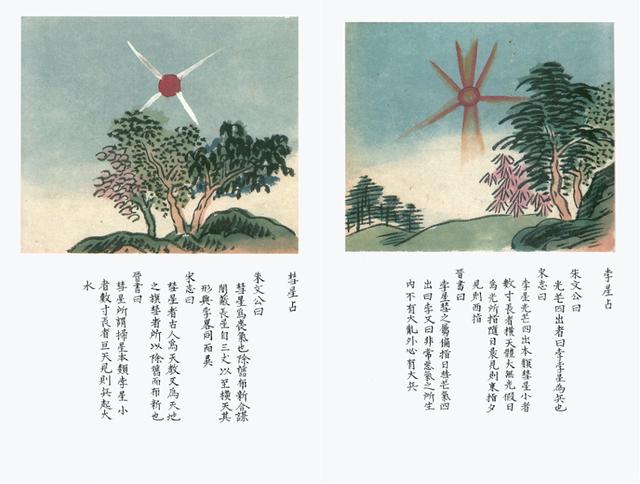 孛星占
朱文公曰
光芒四出者曰孛孛星為兵也
宋志曰
孛星光芒四出本類彗星小者
數寸長者橫天體大無光假日
為光所指隨日晨見則東指夕
見則西指
晉書曰
孛星彗之屬偏指曰彗芒氣四
出曰孛又曰非常惡氣之所生
內不有大亂外必有大兵
彗星占
朱文公曰
彗星為喪氣也除舊布新合謀
閉蔽長星自三丈以至橫天其
形與孛畧同而異
宋志曰
彗星者古人為天教又為天地
之旗彗者所以除舊而布新也
晉書曰
彗星所謂掃星本類孛星小
者數寸長者亘天見則兵起大
水